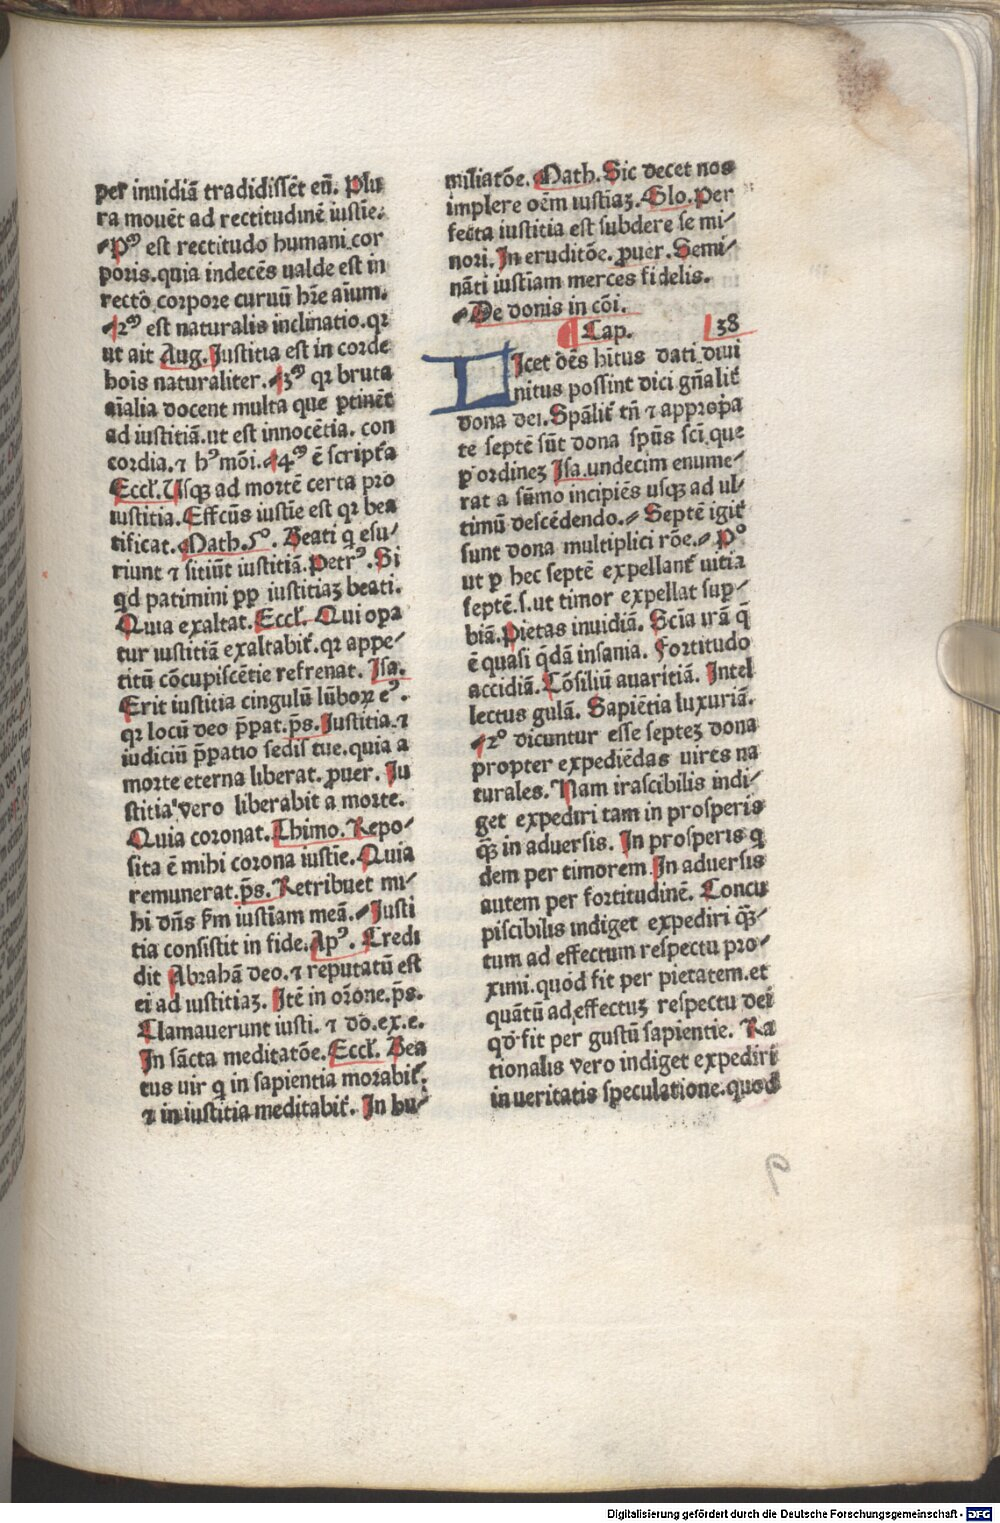 per inuidiā tradidissēt eū. Plu
ra mouēt ad rectitudinē iustīe.
Pꝰ est rectitudo humani cor
poris. quia indecēs ualde est in
recto corpore curuū hr̄e aīum.
2ꝰ est naturalis inclinatio. qꝛ
ut ait Aug. Iustitia est in corde
hoīs naturaliter. 3ꝰ qꝛ bruta
aīalia docent multa que ꝑtinēt
ad iustitiā. ut est innocētia. con
cordia. ⁊ hꝰ mōi. 4ꝰ ē scriptͬa
Eccl̄. Usqꝫ ad mortē certa pro
iustitia. Effcūs iustīe est qꝛ bea
tificat. Math. 5°. Beati q̇ esu⸗
riunt ⁊ sitiūt iustitiā. Petrꝰ. Si
qd patimini ꝓp iustitiaꝫ beati.
Quia exaltat. Eccl̄. Qui opa
tur iustitiā exaltabit̄. qꝛ appe⸗
titū cōcupiscētie refrenat. Isa.
Erit iustitia cingulū lūboꝝ eꝰ.
qꝛ locū deo p̄pat. p̄s. Iustitia ⁊
iudiciū p̄patio sedis tue. quia a
morte eterna liberat. ꝓuer. Iu
stitia vero liberabit a morte.
Quia coronat. Thimo. Repo⸗
sita ē mihi corona iustīe. Quia
remunerat. p̄s. Retribuet mi⸗
hi dn̄s s̄m iustīam meā. Iusti
tia consistit in fide. Apꝰ. Credi
dit Abrahā deo. ⁊ reputatū est
ei ad iustitiaꝫ. Itē in or̄one. p̄s.
Clamauerunt iusti. ⁊ dō. ex. e.
In sācta meditatōe. Eccl̄. Bea
tus uir q̇ in sapientia morabit̄.
⁊ in iustitia meditabit̄. In hu⸗
miliatōe. Math. Sic decet nos
implere oēm iustīaꝫ. Glo. Per
fecta iustitia est subdere se mi⸗
nori. In eruditōe. ꝓuer. Semi⸗
nāti iustīam merces fidelis.
De donis in cōi.
Cap. 38
LIcet oēs hītus dati diui
nitus possint dici gn̄alit̄
dona dei. Spālit̄ tn̄ ⁊ appropa
te septē sūt dona spūs scī. que
ꝑ ordineꝫ Isa. undecim enume⸗
rat a sūmo incipiēs usqꝫ ad ul⸗
timū descēdendo. Septē igit̄
sunt dona multiplici rōe. P°
ut ꝑ hec septē expellant̄ uitia
septē. s. ut timor expellat sup⸗
biā. Pietas inuidiā. Scīa irā q̄
ē quasi q̄dā insania. Fortitudo
accidiā. Cōsiliū auaritiā. Intel
lectus gulā. Sapiētia luxuriā.
2° dicuntur esse septeꝫ dona
propter expediēdas uires na
turales. Nam irascibilis indi⸗
get expediri tam in prosperis
qꝫ̄ in aduersis. In prosperis q
dem per timorem In aduersis
autem per fortitudinē. Concu
piscibilis indiget expediri qꝫ̄⸗
tum ad effectum respectu pro⸗
ximi. quod fit per pietatem. et
quātū ad effectuꝫ respectu dei
qd̄ fit per gustū sapientie. Ra
tionalis vero indiget expediri
in ueritatis speculatione. quod
Digitalisierung gefördert durch die Deutsche Forschungsgemeinschaft - DFG